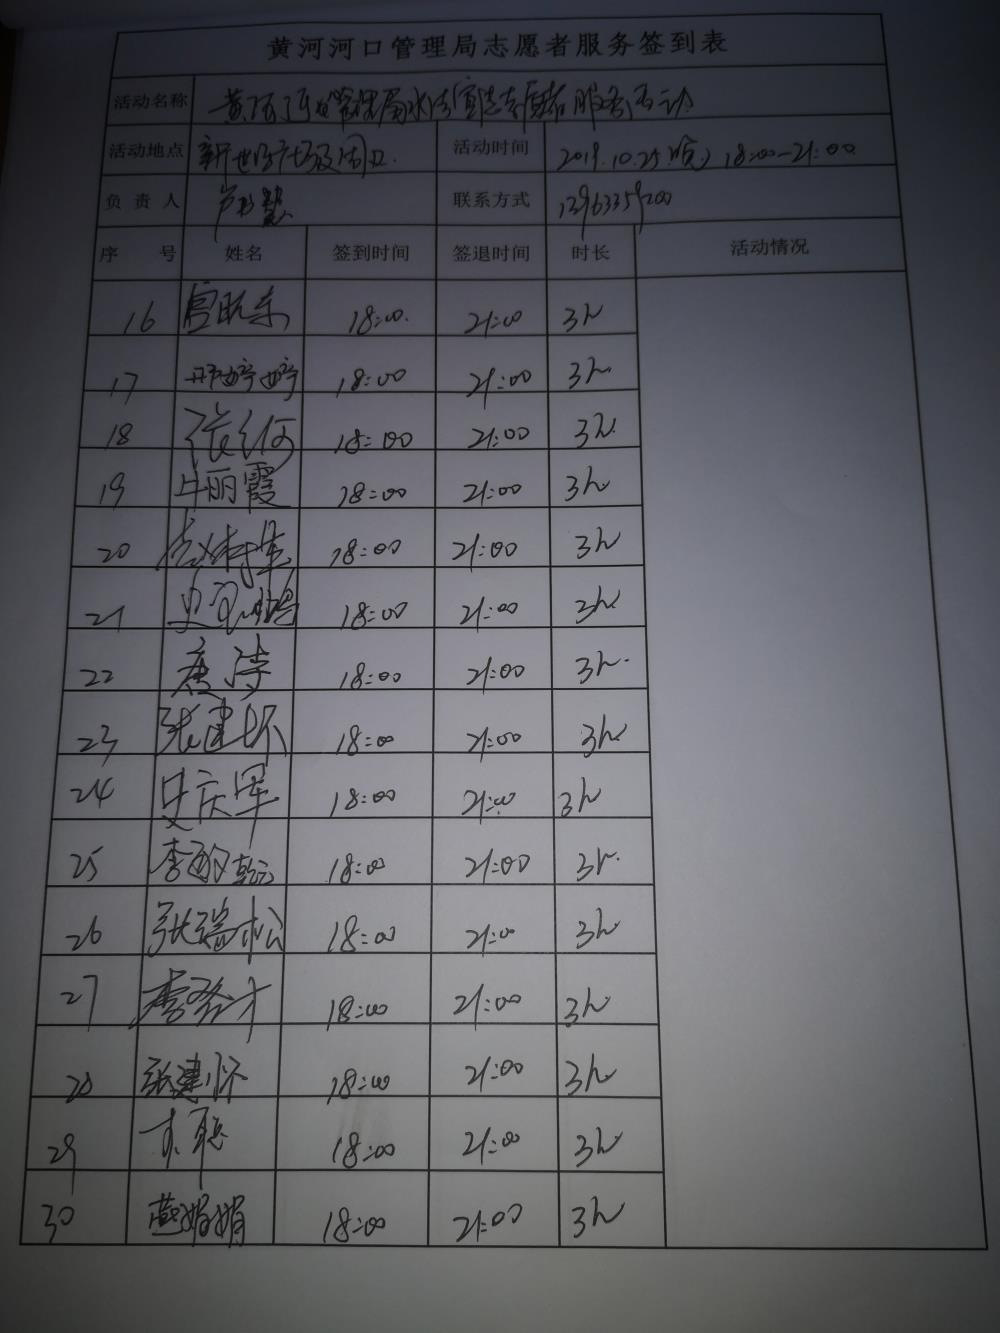 黄河河口管理局志愿者服务签到表
活动名称 黄河河口管理局水法宣传志愿者服务活动
活动地点 新世纪广场及周边 活动时间 2019.10.25(晚) 18:00-21:00
负责人 联系方式
序号 姓名 签到时间 签退时间 时长 活动情况
16 18:00 21:00 3h
17 邢婷婷 18:00 21:00 3h
18 张 18:00 21:00 3h
19 牛丽霞 18:00 21:00 3h
20 18:00 21:00 3h
21 18:00 21:00 3h
22 唐涛 18:00 21:00 3h
23 张建怀 18:00 21:00 3h
24 史庆军 18:00 21:00 3h
25 李 18:00 21:00 3h
26 张瑞松 18:00 21:00 3h
27 李 18:00 21:00 3h
28 张建怀 18:00 21:00 3h
29 聪 18:00 21:00 3h
30 燕娟娟 18:00 21:00 3h